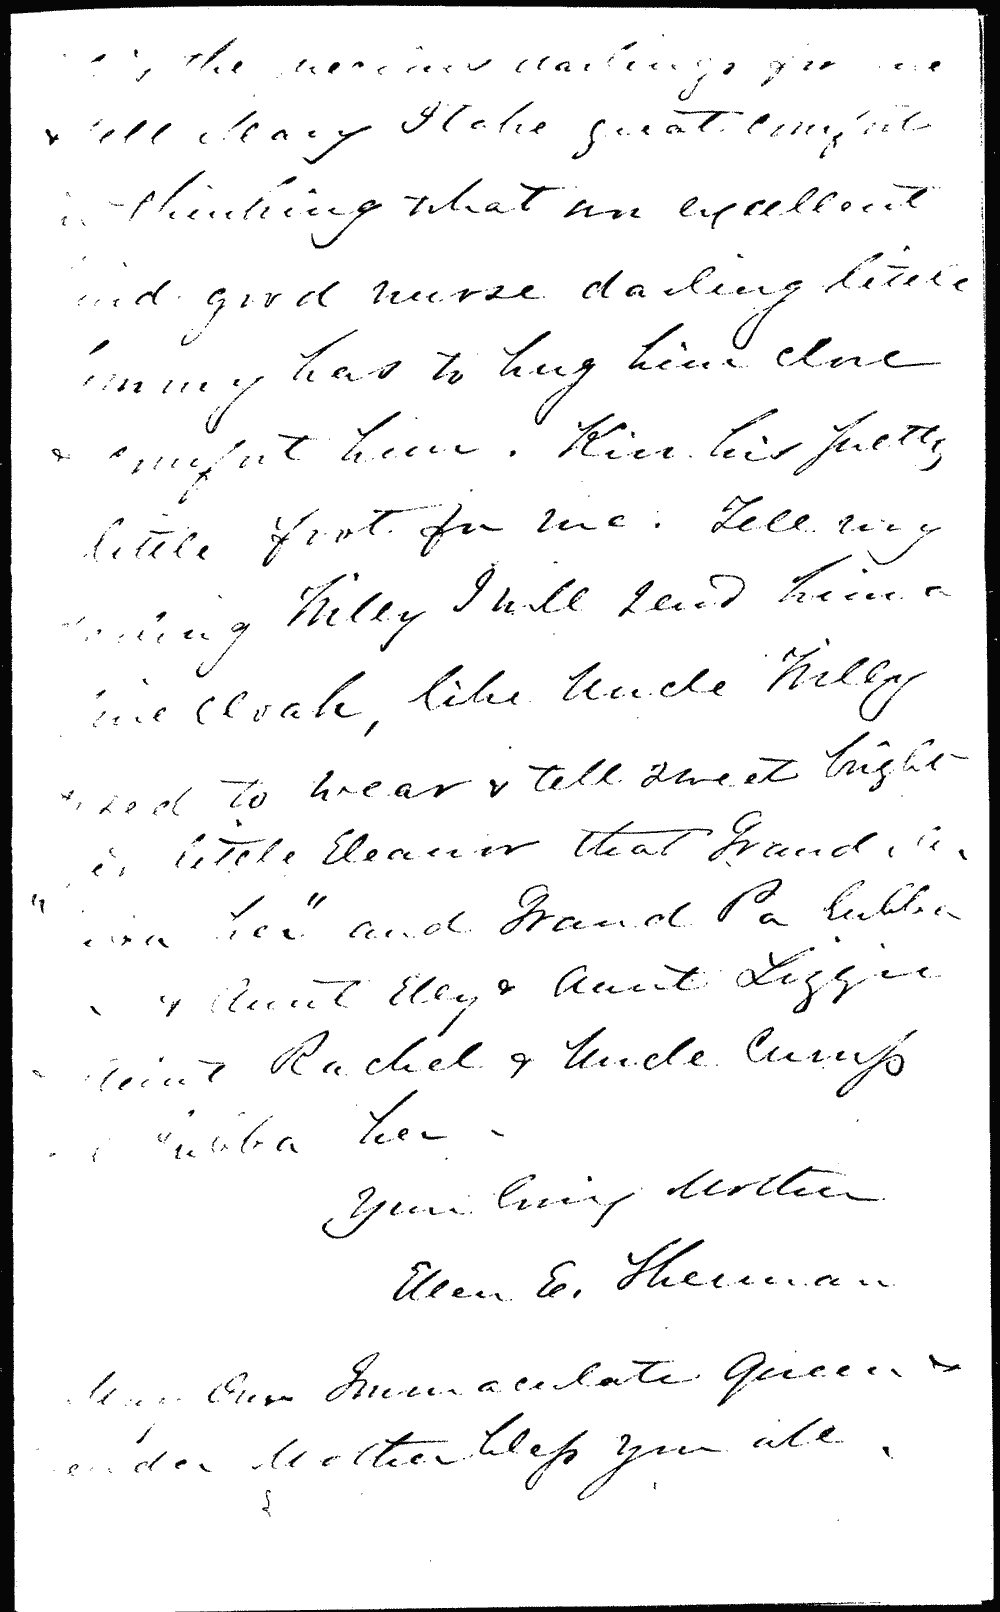 the precious darlings for me
& tell Mary I take great comfort
in thinking what an excellent
kind good nurse darling little
Tommy has to hug him close
& comfort him. Kiss his pretty
little foot for me. Tell my
darling Willy I will send him a
fine cloak, like Uncle Willy
used to wear & tell sweet bright
little Eleanor that Grand
her" and Grand Pa lubba
& Aunt Elly & Aunt Lizzie
Aunt Rachel & Uncle Cump
lubba her.
Your loving Mother
Ellen E. Sherman
May Our Immaculate Queen &
tender Mother bless you all.